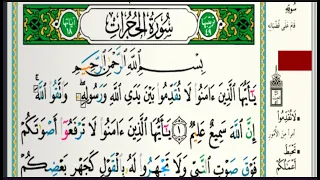 سُورَةُ الْحُجُرَاتِ
بِسْمِ اللَّهِ الرَّحْمَٰنِ الرَّحِيمِ
يَٰٓأَيُّهَا الَّذِينَ ءَامَنُوا لَا تُقَدِّمُوا بَيْنَ يَدَيِ اللَّهِ وَرَسُولِهِ وَاتَّقُوا اللَّهَ
إِنَّ اللَّهَ سَمِيعٌ عَلِيمٌ ١ يَٰٓأَيُّهَا الَّذِينَ ءَامَنُوا لَا تَرْفَعُوٓا أَصْوَٰتَكُمْ
فَوْقَ صَوْتِ النَّبِيِّ وَلَا تَجْهَرُوا لَهُ بِالْقَوْلِ كَجَهْرِ بَعْضِكُمْ
لَا تُقَدِّمُوا
تَحْبَطَ
أَعْمَٰلُكُمْ